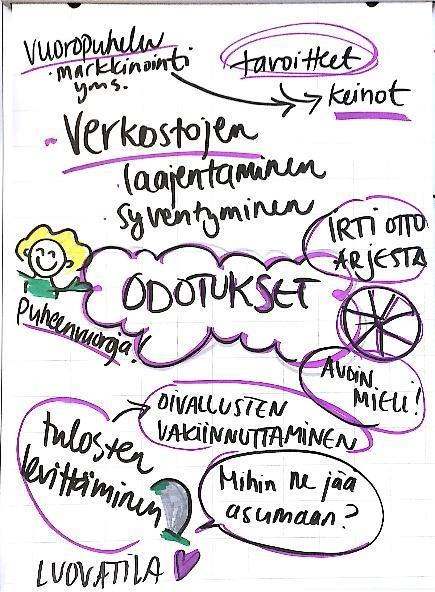 VUOROPUHELU
· markkinointi
yms.
tavoitteet
keinot
Verkostojen
· laajentaminen
· syventyminen
IRTI OTTO
ARJESTA
ODOTUKSET
Puheenvuoroja!
AVOIN
MIELI!
OIVALLUSTEN
VAKIINNUTTAMINEN
tulosten
levittäminen
Mihin ne jää
asumaan?
LUOVATILA